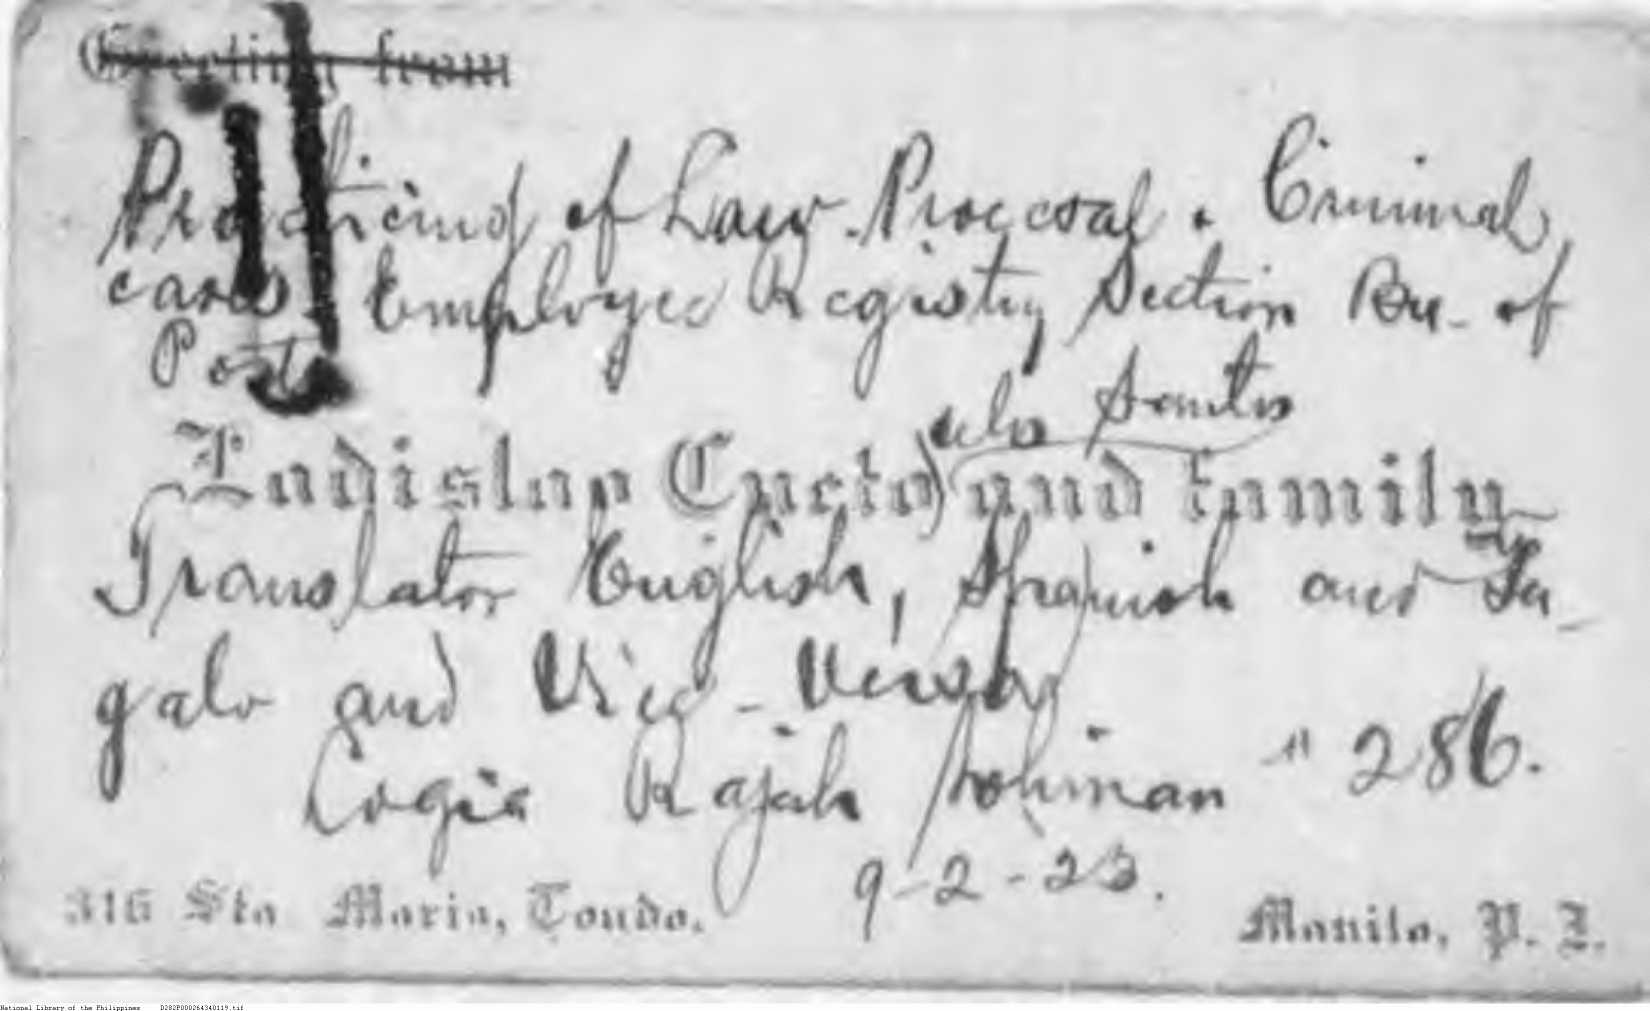 Greeting from
Practicing of Law. Procesal . Criminal,
cases. Employee Registry Section Bu. of
Posts
de los Santos
Ladislao Cueto) and family
Translator English, Spanish and Ta-
galo and Vice-Versa
Logia Rajah Soliman " 286.
9-2-23.
316 Sta Maria, Tondo.
Manila, P. I.
National Library of the Philippines D282P000264340119.tif